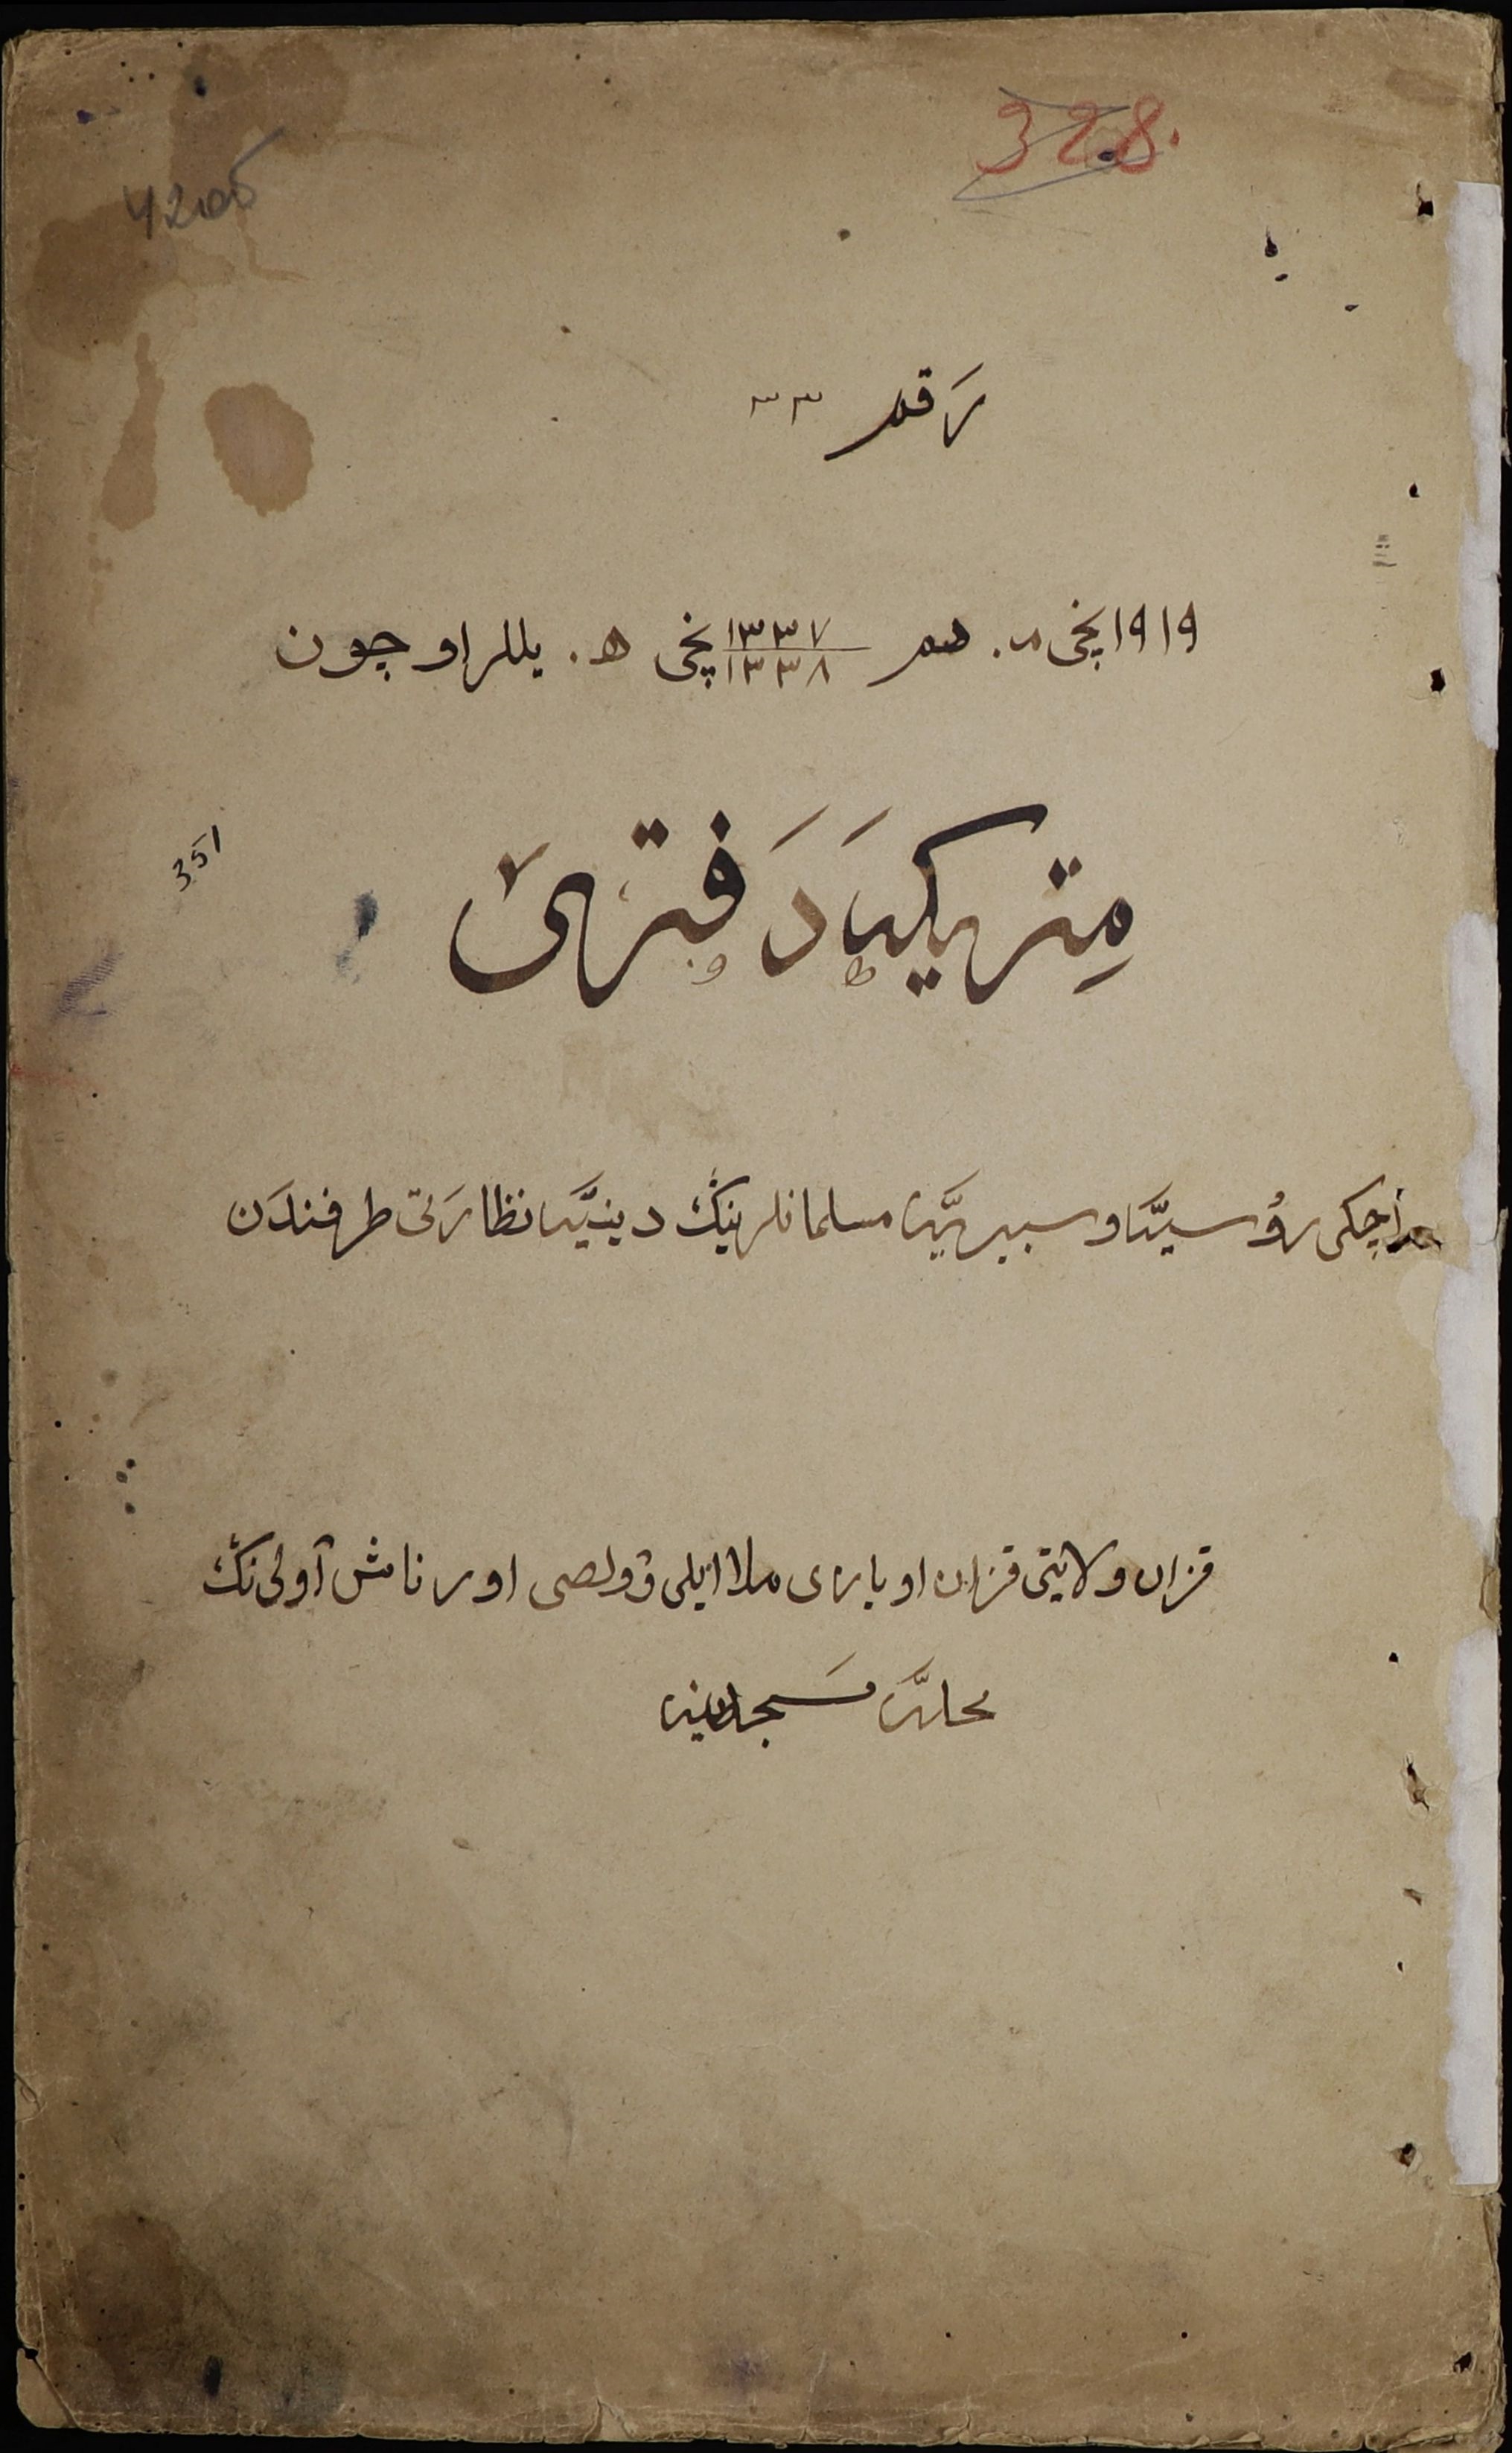 328.
420б
رَقم ٣٣
١٩١٩نچی م. هم ١٣٣٧/١٣٣٨نچی ه. یللر اوچون
مِتریکه دَفتری
351
اچکی رۇسیَّه و سیبریَّه مسلمانلرینڭ دینیَّه نظارَتی طرفندَن
قزان ولایتی قزان اویازی ملا ایلی ۋولصی اورناش آولی نڭ
محلَّه مَسجدینه